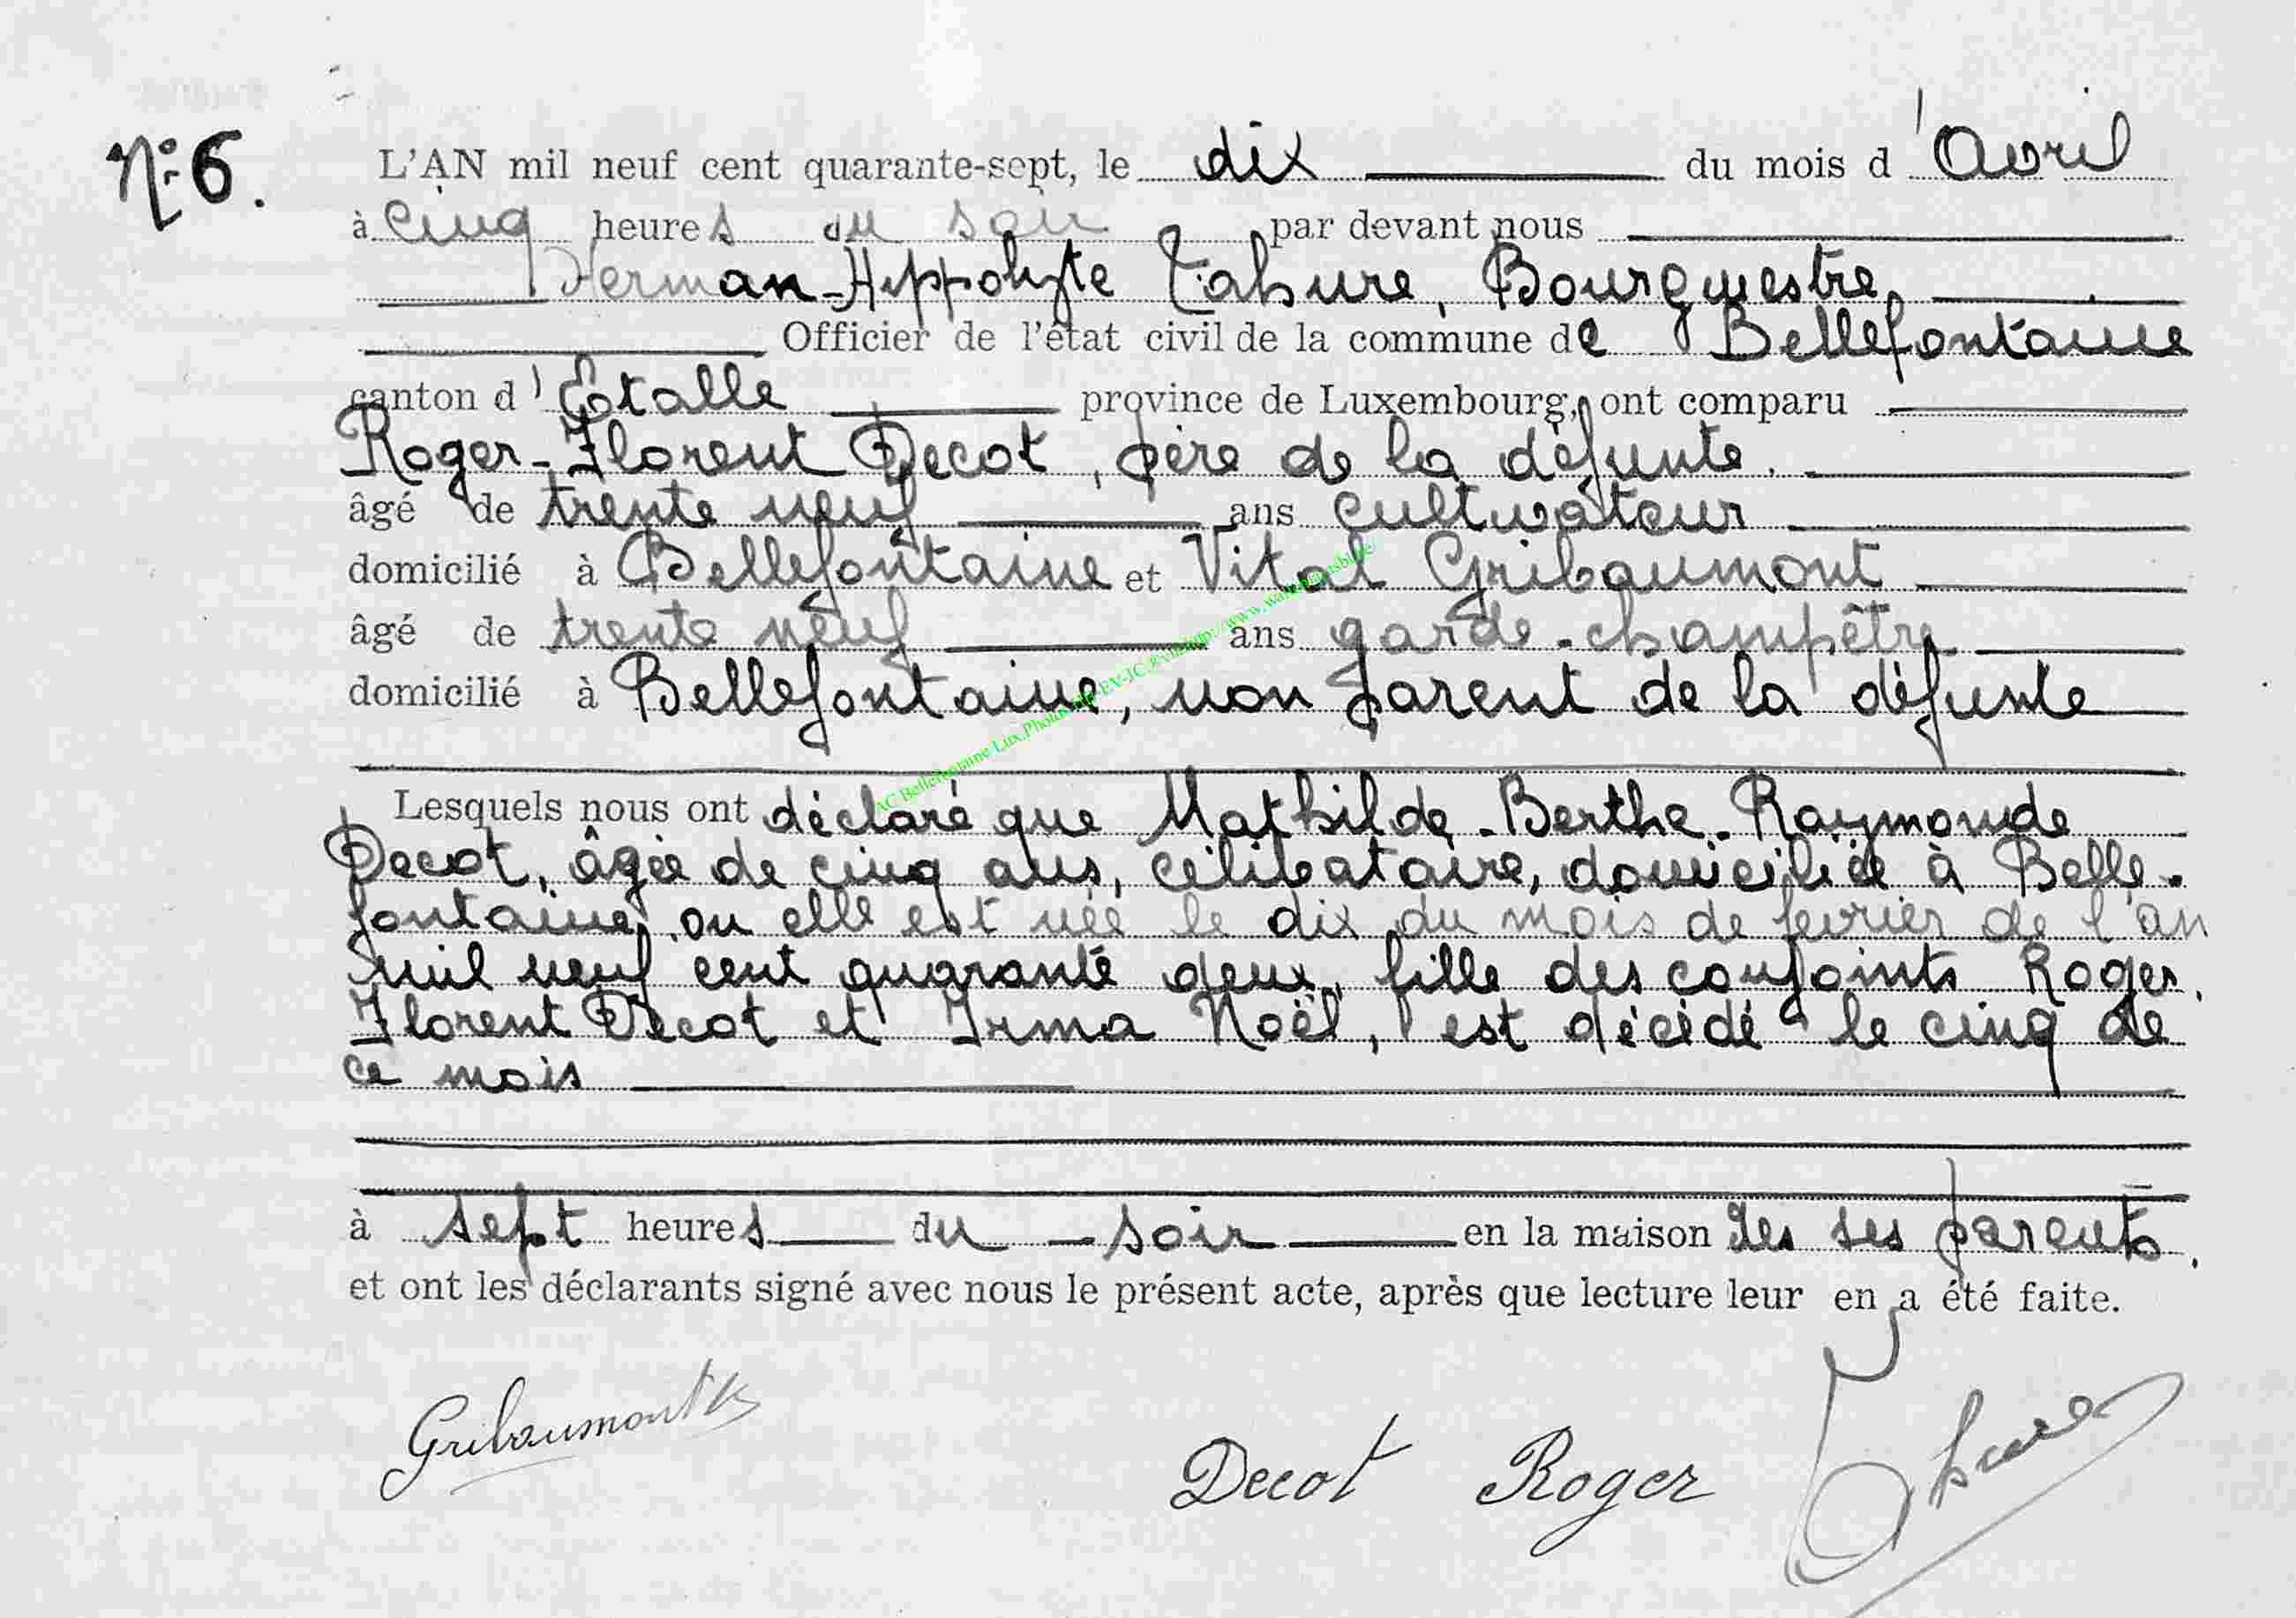 N° 6.
L'AN mil neuf cent quarante-sept, le dix du mois d'Avril
à cinq heures du soir par devant nous
Herman-Hippolyte Lahure, Bourgmestre,
Officier de l'état civil de la commune de Bellefontaine
canton d'Etalle province de Luxembourg, ont comparu
Roger-Florent Decot, père de la défunte.
âgé de trente neuf ans cultivateur
domicilié à Bellefontaine et Vital Gribaumont
âgé de trente neuf ans garde-champêtre
domicilié à Bellefontaine, non parent de la défunte
Lesquels nous ont déclaré que Mathilde-Berthe-Raymonde
Decot, âgée de cinq ans, célibataire, domiciliée à Belle-
fontaine, ou elle est née le dix du mois de février de l'an
mil neuf cent quarante deux, fille des conjoints Roger,
Florent Decot et Irma Noël, est décédé le cinq de
ce mois
à sept heures du soir en la maison des ses parents.
et ont les déclarants signé avec nous le présent acte, après que lecture leur en a été faite.
Gribaumont
Decot Roger
AC Bellefontaine Lux.Photos